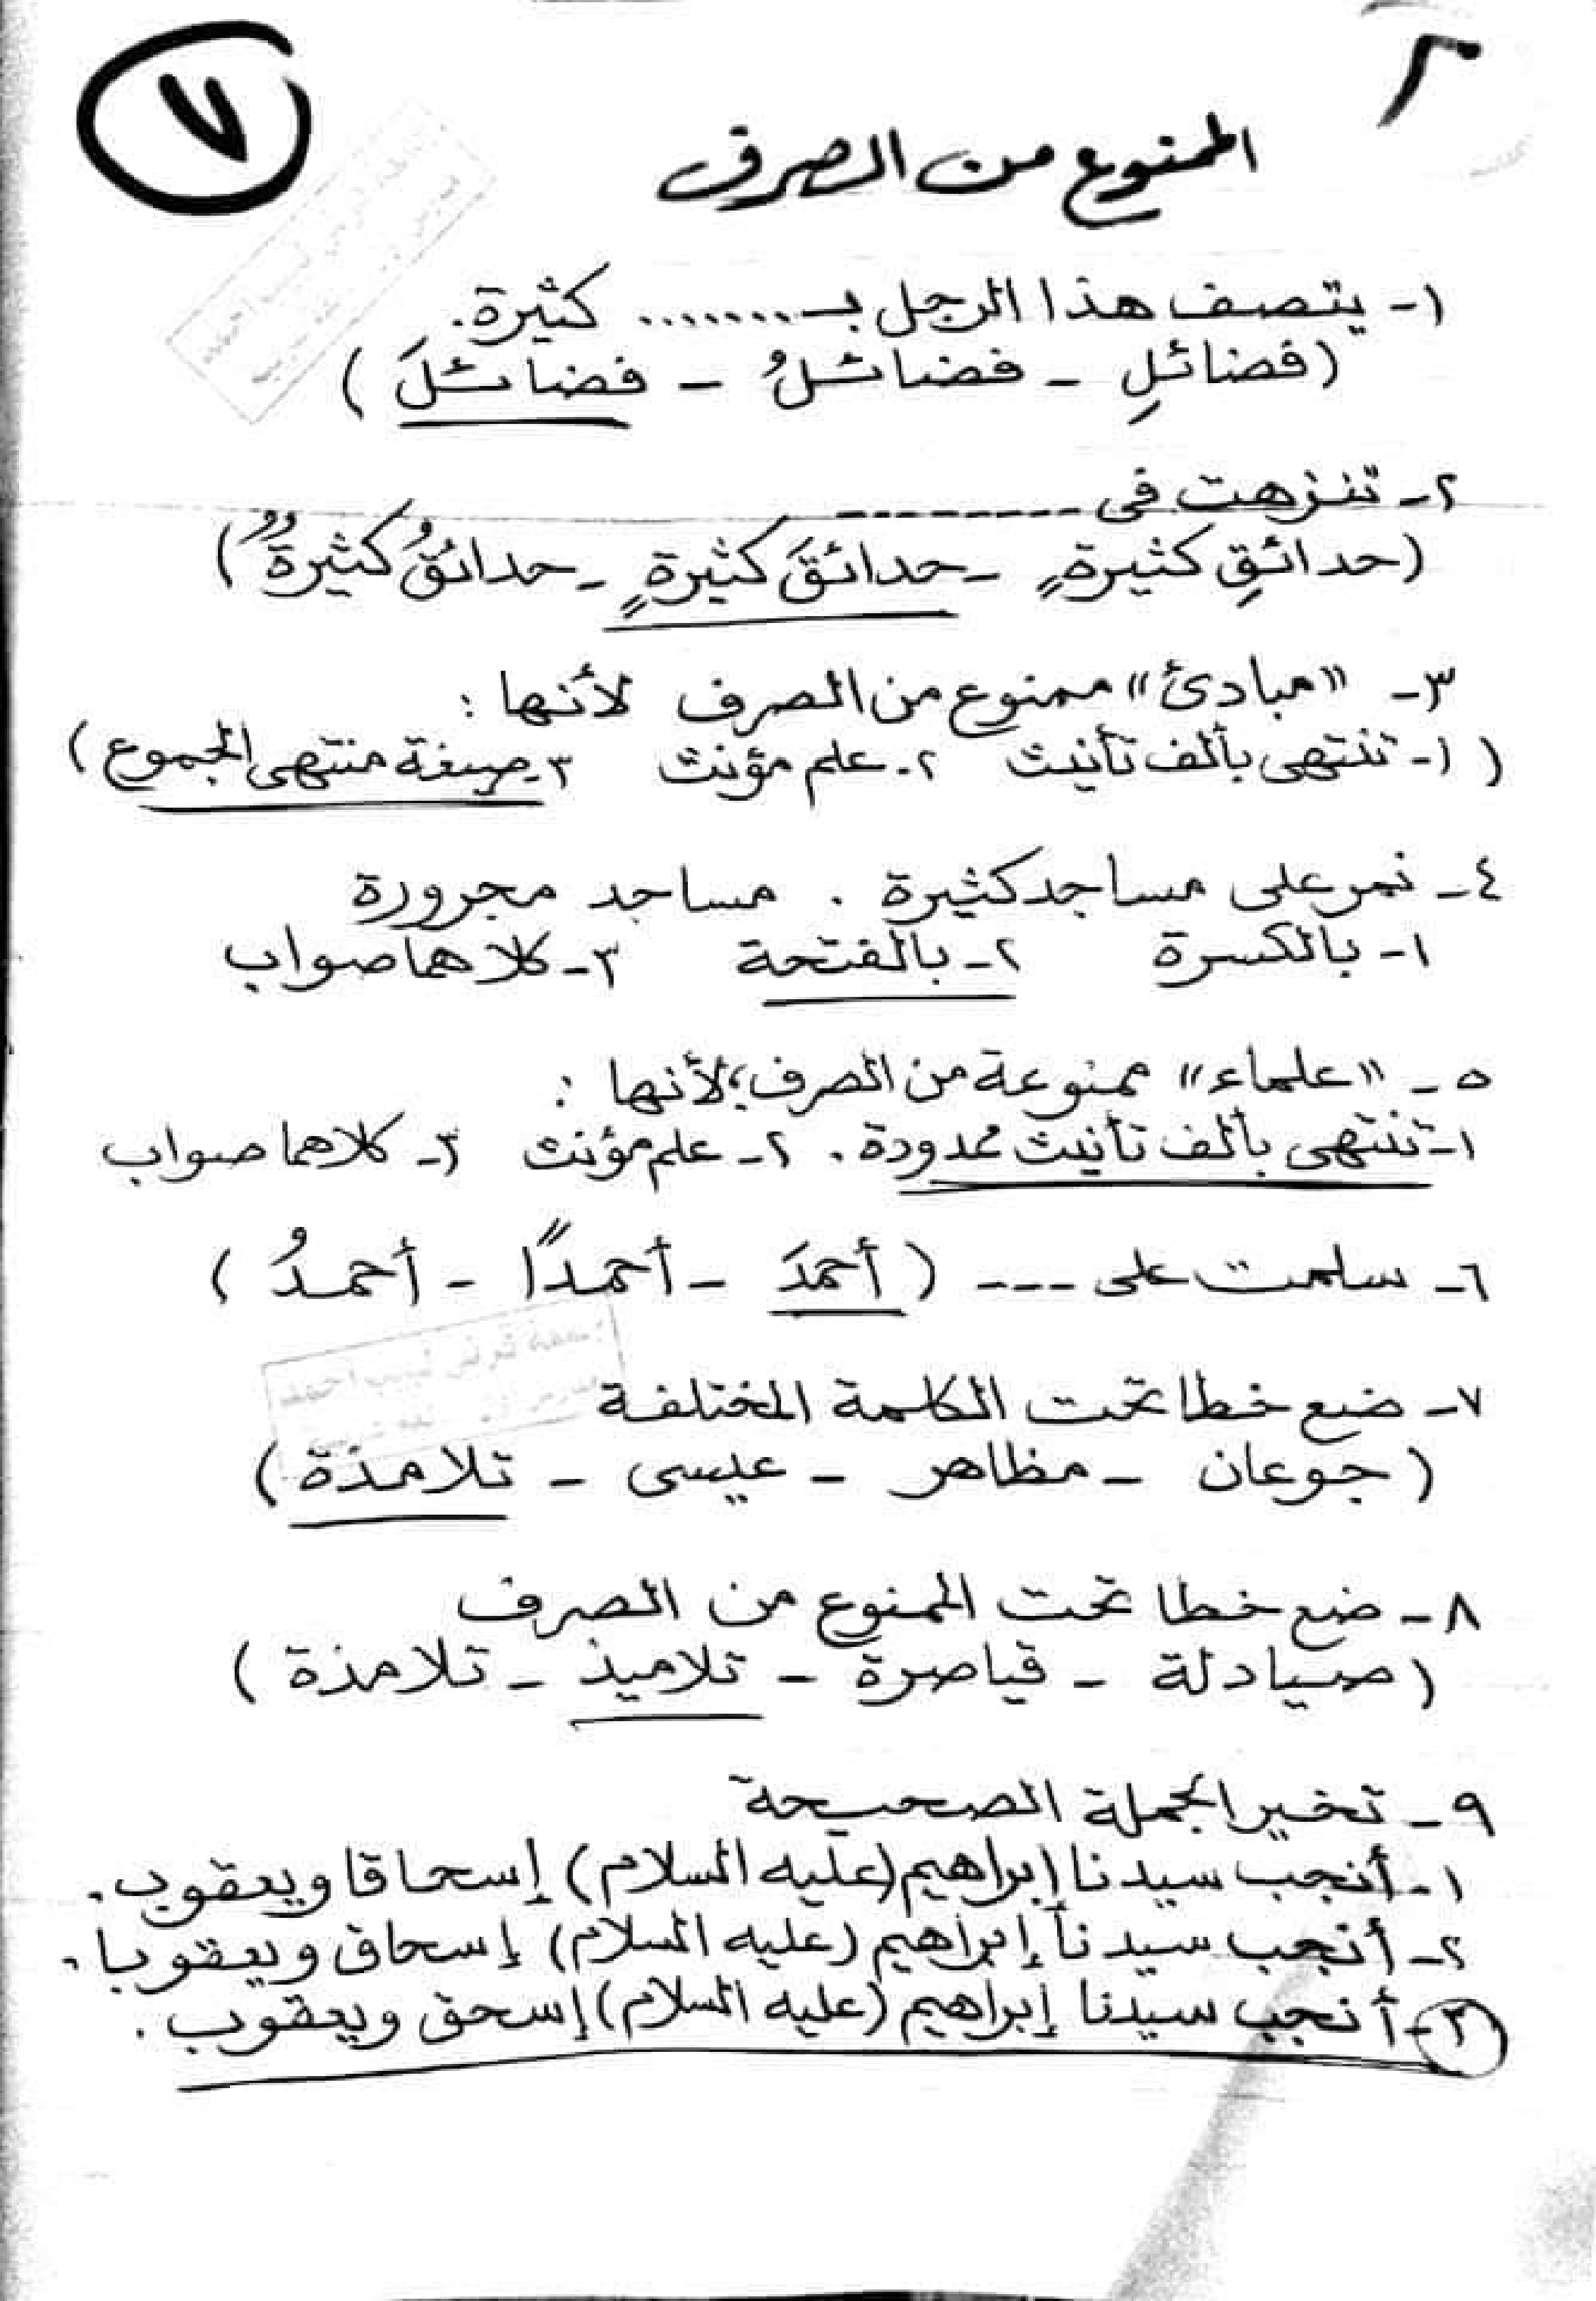 ٧
الممنوع من الصرف
١- يتصف هذا الرجل بـ ........ كثيرة.
(فضائلِ - فضائلُ - فضائلَ)
٢- تنزهت فى --------
(حدائقِ كثيرةٍ - حدائقَ كثيرةٍ - حدائقُ كثيرةٌ)
٣- "مبادئ" ممنوع من الصرف لأنها :
(١- تنتهى بألف تأنيث ٢- علم مؤنث ٣- صيغة منتهى الجموع)
٤- نمر على مساجد كثيرة . مساجد مجرورة
١- بالكسرة ٢- بالفتحة ٣- كلاهما صواب
٥- "علماء" ممنوعة من الصرف؛ لأنها :
١- تنتهى بألف تأنيث ممدودة . ٢- علم مؤنث ٣- كلاهما صواب
٦- سلمت على --- (أحمدَ - أحمدًا - أحمدُ)
٧- ضع خطا تحت الكلمة المختلفة
(جوعان - مظاهر - عيسى - تلامذة)
٨- ضع خطا تحت الممنوع من الصرف
(صيادلة - قياصرة - تلاميذ - تلامذة)
٩- تخير الجملة الصحيحة
١- أنجب سيدنا إبراهيم (عليه السلام) إسحاقا ويعقوب.
٢- أنجب سيدنا إبراهيم (عليه السلام) إسحاق ويعقوبا.
٣- أنجب سيدنا إبراهيم (عليه السلام) إسحق ويعقوب.